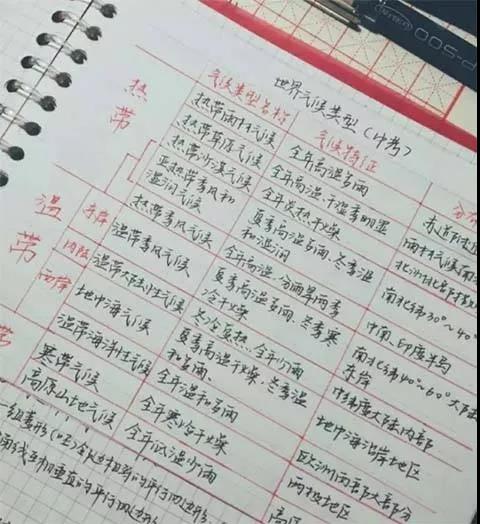 世界气候类型(中考)
气候类型名称 气候特征 分
热带
热带雨林气候 全年高温多雨
热带草原气候 全年高温,干湿季明显
热带沙漠气候 全年炎热干燥
亚热带季风和湿润气候 夏季高温多雨、冬季温和湿润 南北纬30°~40°
热带季风气候 全年高温,分两旱两季 中南、印度半岛
温带
东岸 温带季风气候 夏季高温多雨、冬季寒冷干燥 南北纬40°~60°大陆东岸
内陆 温带大陆性气候 冬冷夏热,全年少雨 中纬度大陆内部
西岸 地中海气候 夏季高温干燥,冬季温和多雨、 地中海沿岸地区
温带海洋性气候 全年温和多雨 欧洲西部大部分
带 寒带气候 全年寒冷干燥 两极地区
高原山地气候 全年低温少雨 高
一组菱形
角线互相垂直的平行四边形
P-500